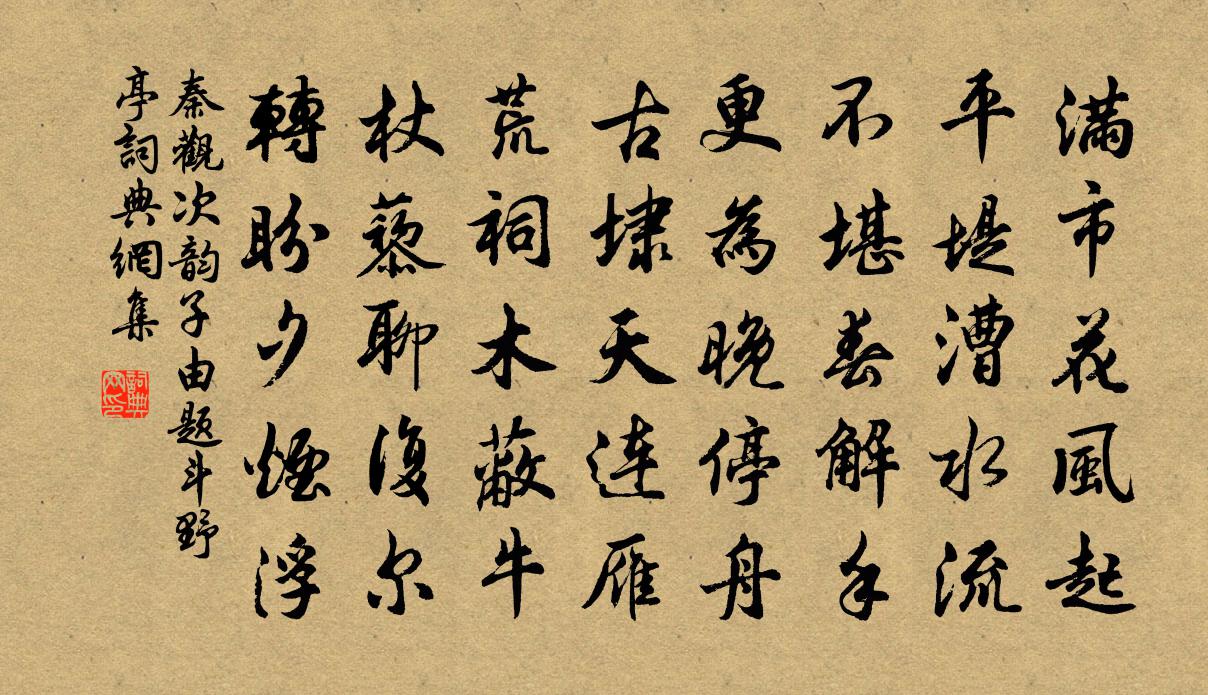 滿市花風起
平堤漕水流
不堪春解手
更為晚停舟
古埭天連雁
荒祠木蔽牛
杖藜聊復尔
轉盼夕煙浮
秦觀次韵子由题斗野
亭詞典網集
詞典
网印